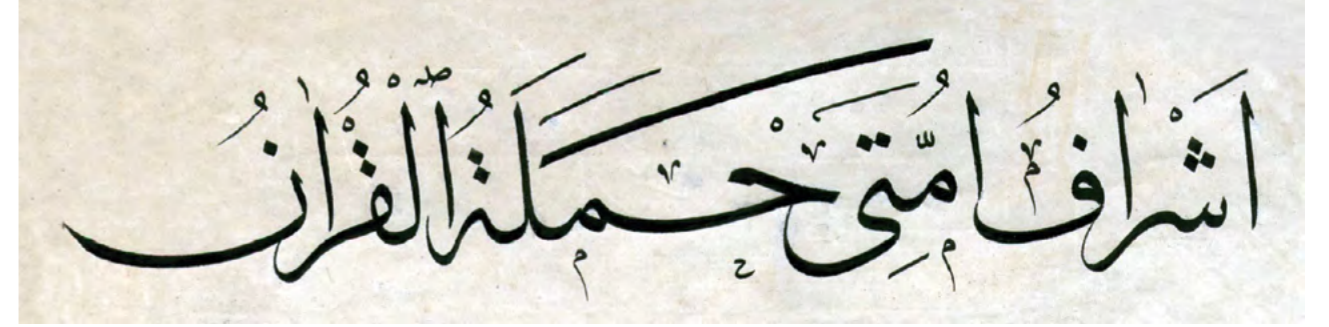 اَشْرَافُ اُمَّتِى حَمَلَةُ الْقُرْاٰنُ